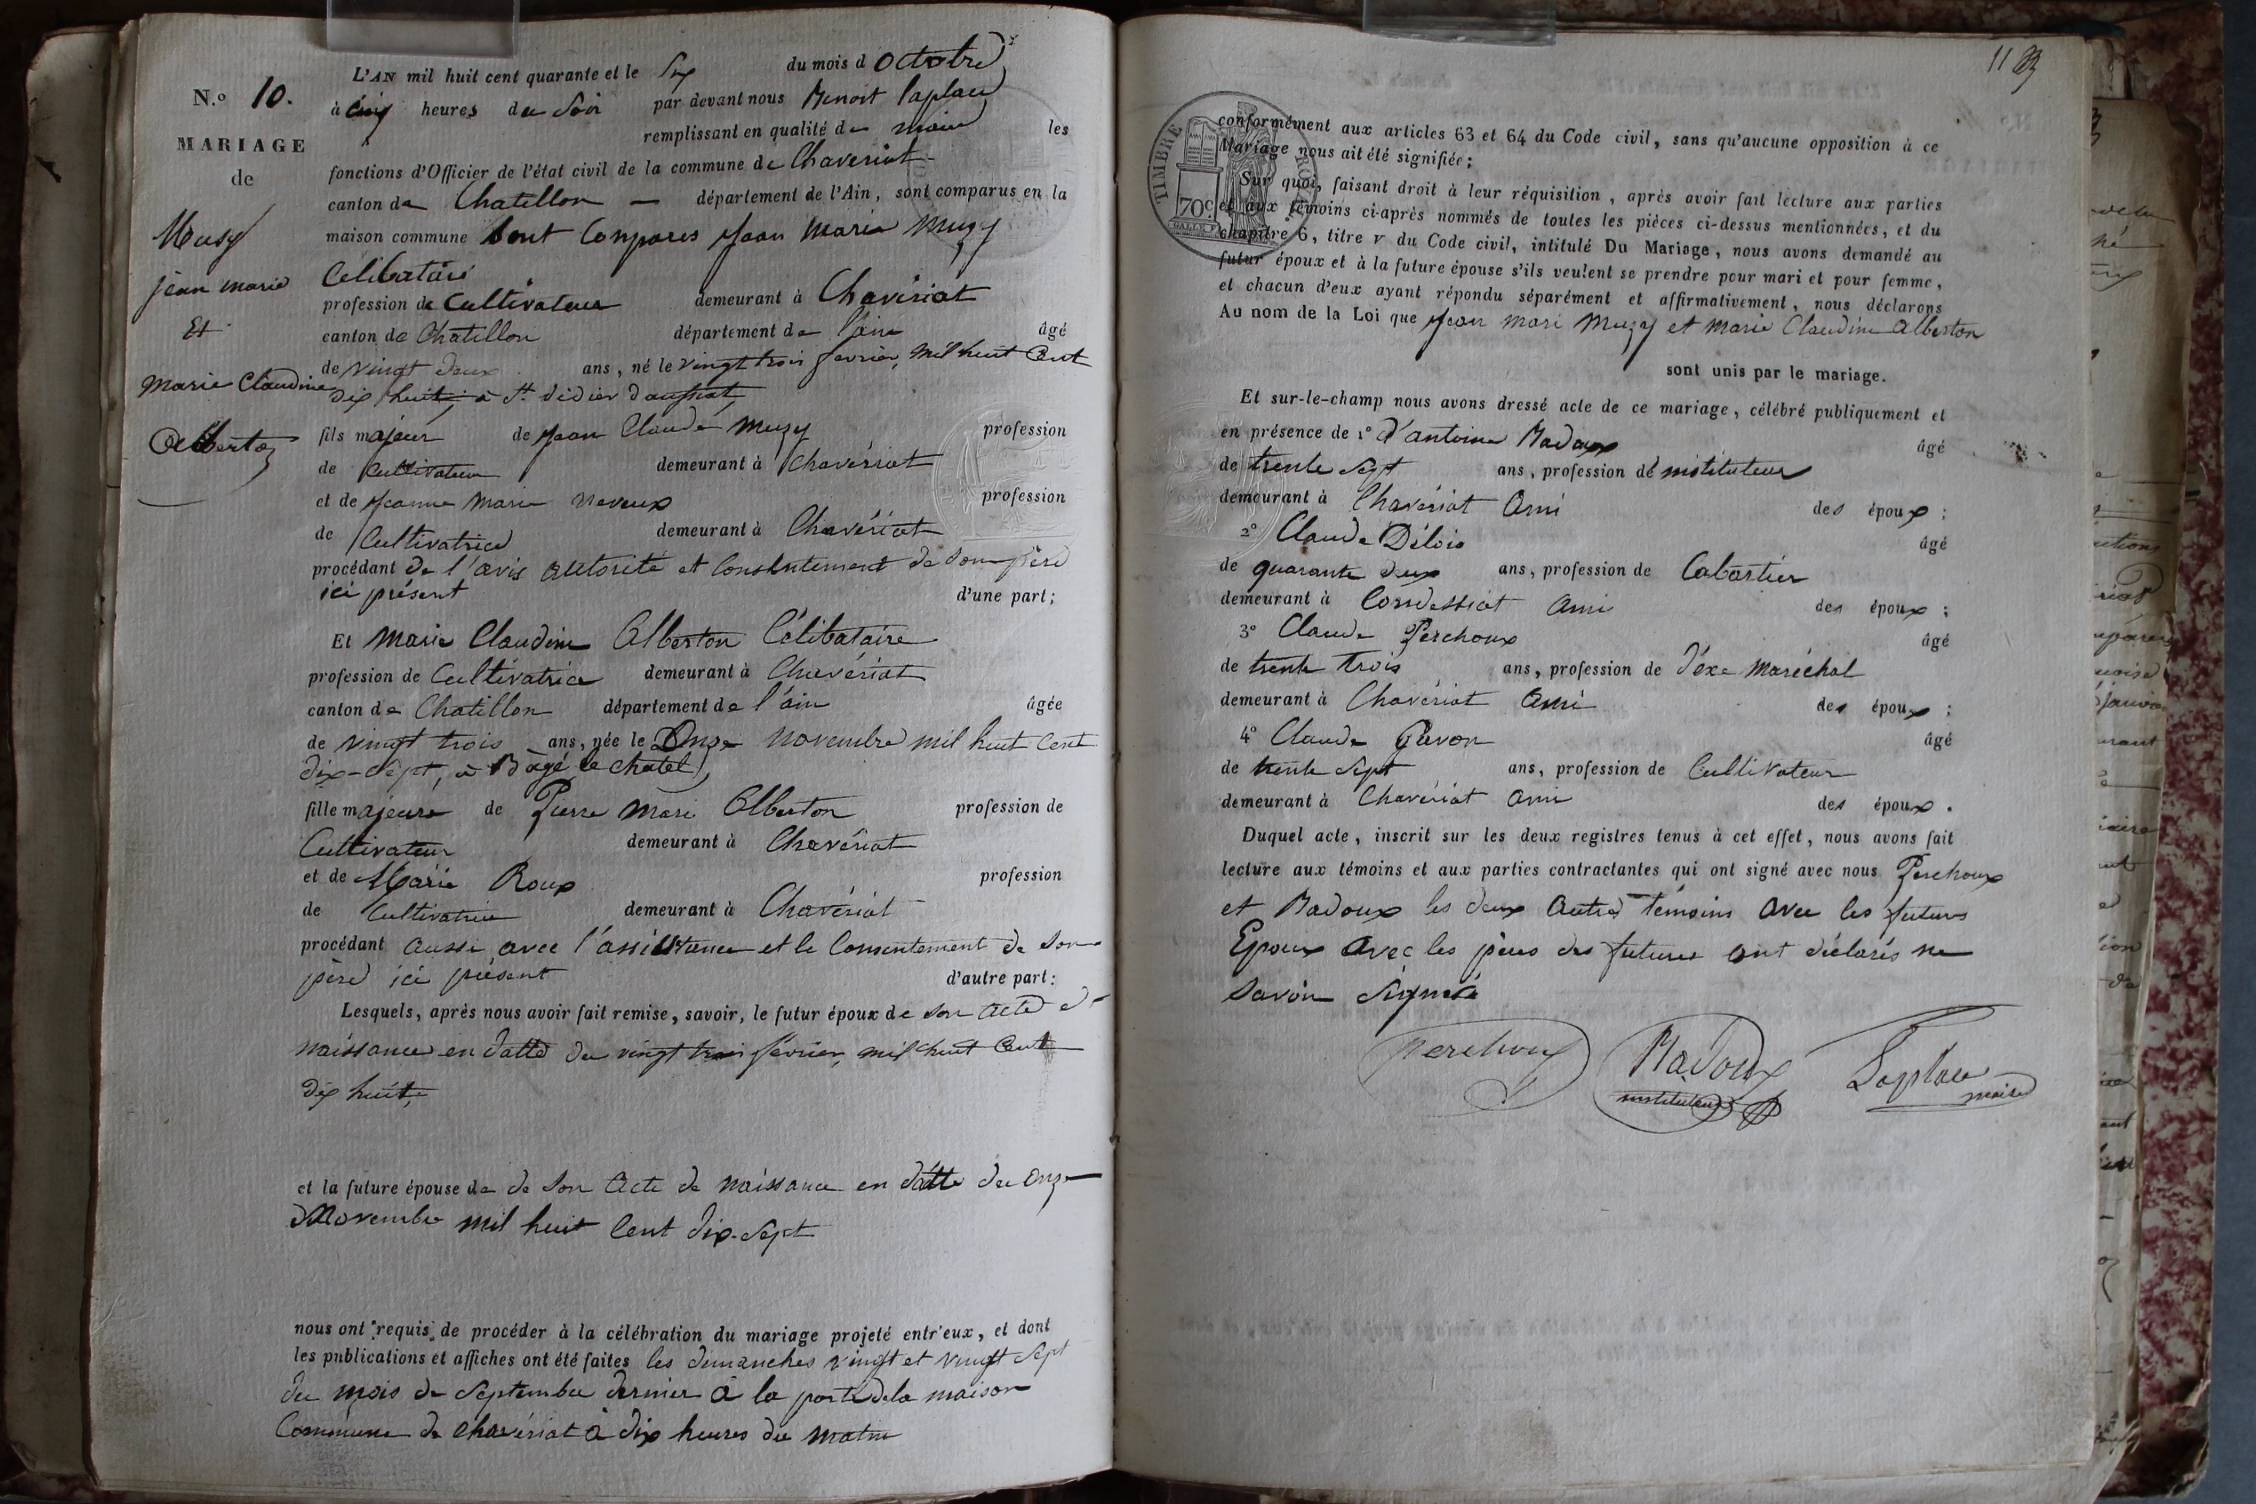 N.o 10.
MARIAGE
de
Musy
jean marie
Et
marie Claudine
Alberton
L'AN mil huit cent quarante et le six du mois d octobre
à cinq heures du Soir par devant nous Benoit Laplace
remplissant en qualité de maire les
fonctions d'Officier de l'état civil de la commune de Chaveriat
canton de Chatillon — département de l'Ain, sont comparus en la
maison commune Sont Comparus Jean Marie Muzy
Célibataire
profession de Cultivateur demeurant à Chavériat
canton de Chatillon département de l'ain âgé
de vingt deux ans, né le vingt trois fevrier, mil huit Cent
dix huit, à St didier d'aussiat,
fils majeur de Jean Claude Muzy profession
de Cultivateur demeurant à Chavériat
et de Jeanne Marie Neveux profession
de Cultivatrice demeurant à Chavériat
procédant de l'avis autorité et Consentement de Son père
ici présent d'une part;
Et Marie Claudine Alberton Célibataire
profession de Cultivatrice demeurant à Chavériat
canton de Chatillon département de l'ain âgée
de vingt trois ans, née le Onze novembre mil huit Cent
dix-sept, à Bâgé le chatel,
fille majeure de Pierre Mari Alberton profession de
Cultivateur demeurant à Chavériat
et de Marie Roux profession
de Cultivatrice demeurant à Chavériat
procédant aussi avec l'assistance et le Consentement de Son
père ici présent d'autre part:
Lesquels, après nous avoir fait remise, savoir, le futur époux de son acte de
naissance en datte du vingt trois février, mil huit Cent
dix huit,
et la future épouse de de Son Acte de naissance en datte du onze
Novembre mil huit Cent dix-Sept
nous ont requis de procéder à la célébration du mariage projeté entr'eux, et dont
les publications et affiches ont été faites les dimanches vingt et vingt Sept
du mois de Septembre dernier à la porte de la maison
Commune de chavériat à dix heures du matin
11
TIMBRE ROYAL
70c
conformément aux articles 63 et 64 du Code civil, sans qu'aucune opposition à ce
Mariage nous ait été signifiée;
Sur quoi, faisant droit à leur réquisition, après avoir fait lecture aux parties
et aux témoins ci-après nommés de toutes les pièces ci-dessus mentionnées, et du
chapitre 6, titre v du Code civil, intitulé Du Mariage, nous avons demandé au
futur époux et à la future épouse s'ils veulent se prendre pour mari et pour femme,
et chacun d'eux ayant répondu séparément et affirmativement, nous déclarons
Au nom de la Loi que Jean Mari Muzy et Marie Claudine Alberton
sont unis par le mariage.
Et sur-le-champ nous avons dressé acte de ce mariage, célébré publiquement et
en présence de 1° d'antoine Badoux âgé
de trente Sept ans, profession dé instituteur
demeurant à Chavériat Ami des époux;
2° Claude Délois âgé
de quarante deux ans, profession de Cabartier
demeurant à Condessiat Ami des époux;
3° Claude Perchoux âgé
de trente trois ans, profession de d'éxe Maréchal
demeurant à Chavériat Ami des époux;
4° Claude Guvon âgé
de trente Sept ans, profession de Cultivateur
demeurant à Chavériat Ami des époux.
Duquel acte, inscrit sur les deux registres tenus à cet effet, nous avons fait
lecture aux témoins et aux parties contractantes qui ont signé avec nous Perchoux
et Badoux les deux Autres témoins avec les futurs
Epoux avec les pères des futures ont déclarés ne
Savoir Signé
Perchoux
Badoux
instituteur
Laplace
maire